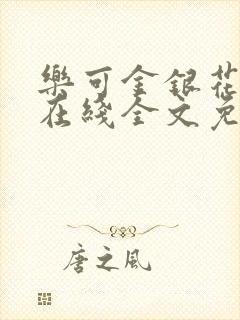 樂可金銀花
在綫全文免
唐之風